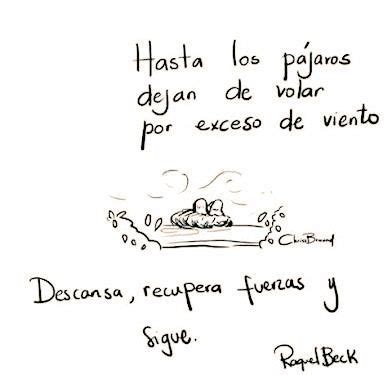 Hasta los pájaros
dejan de volar
por exceso de viento
Descansa, recupera fuerzas y
sigue.
Raquel Beck